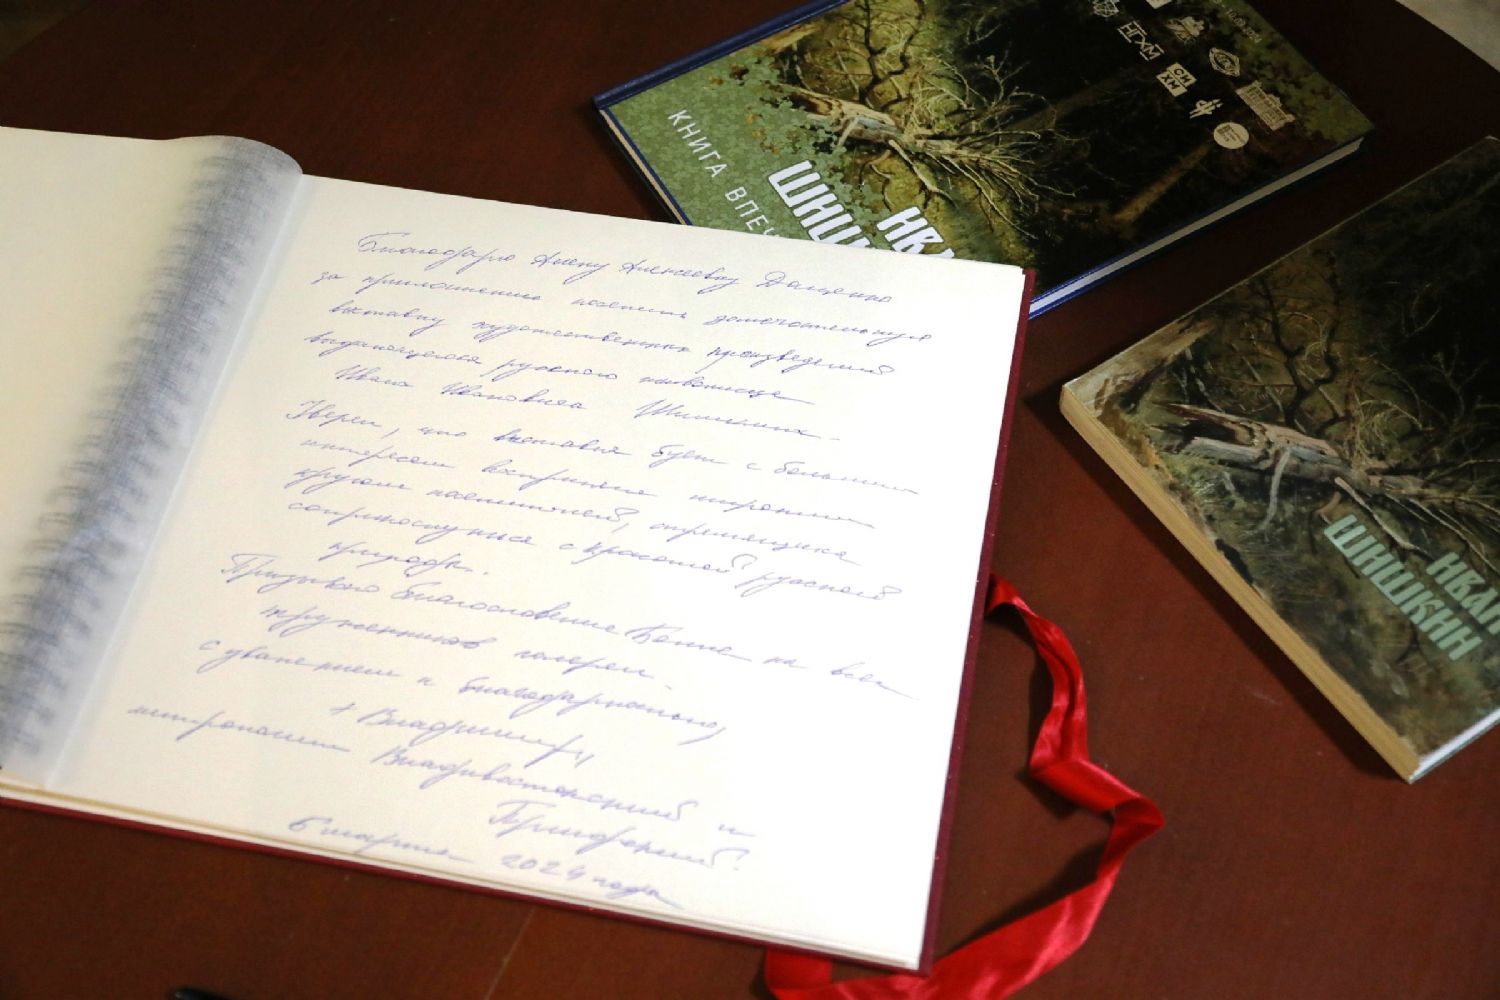 Благодарю Алену Алексеевну Даценко
за приглашение посетить замечательную
выставку художественных произведений
выдающегося русского живописца
Ивана Ивановича Шишкина.
Уверен, что выставка будет с большим
интересом воспринята широким
кругом посетителей, стремящихся
соприкоснуться с красотой русской
природы.
Призываю благословение Божие на всех
тружеников галереи.
С уважением и благодарностью,
+ Владимир,
митрополит Владивостокский и
Приморский.
6 марта 2024 года
КНИГА ВПЕЧ
ИВА
ШИШ
НГХМ
СИ
ХМ
ИВАН
ШИШКИН